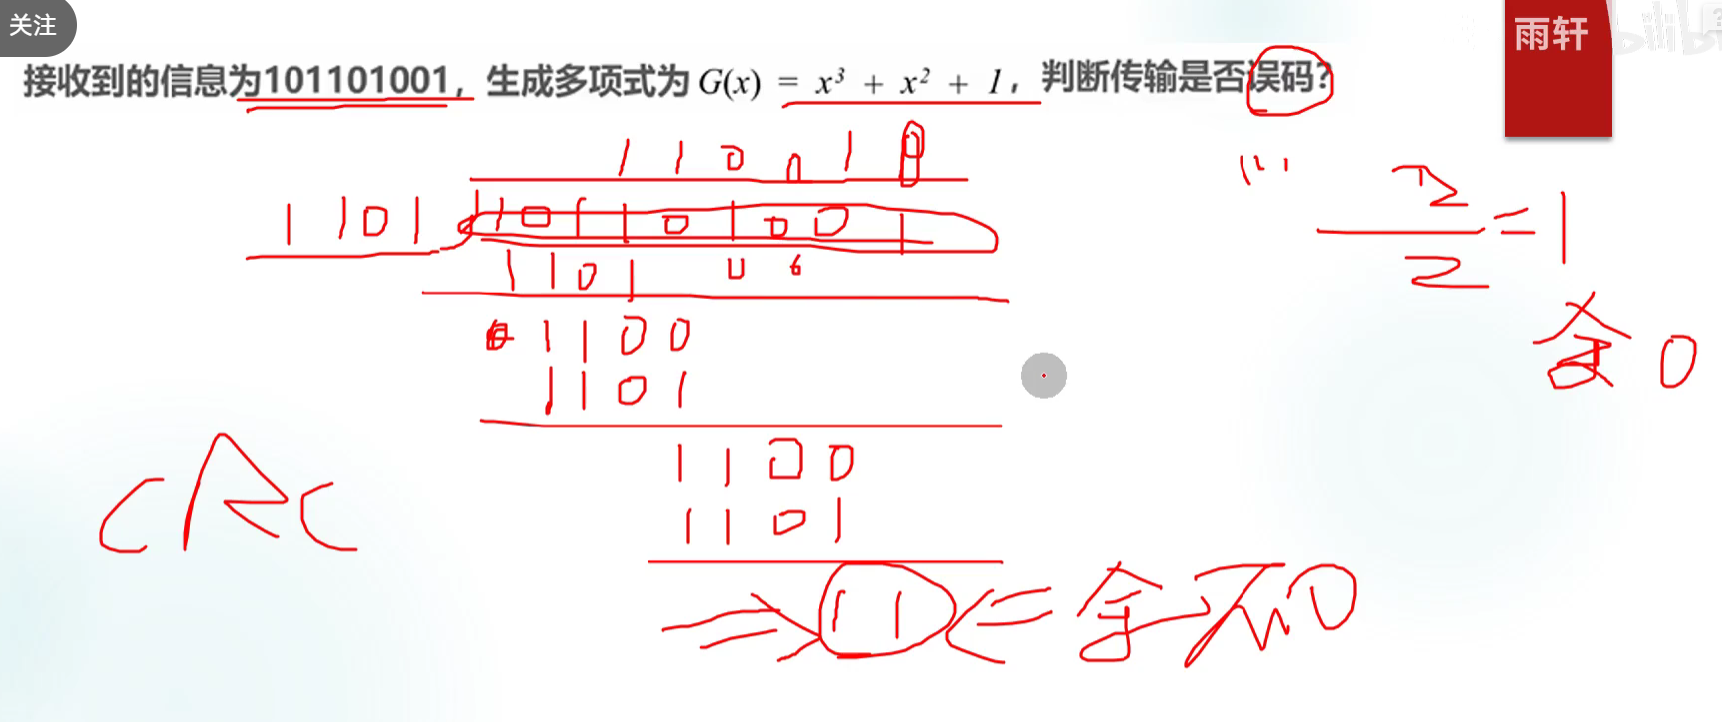 关注
雨轩
bilibili
接收到的信息为101101001，生成多项式为 G(x) = x³ + x² + 1，判断传输是否误码?
1 1 0 0 1 0
1 1 0 1
1 0 1 1 0 1 0 0 1
1 1 0 1
1 1 0 0
1 1 0 1
1 1 0 0
1 1 0 1
1 1
余不0
2
2
= 1
余 0
CRC